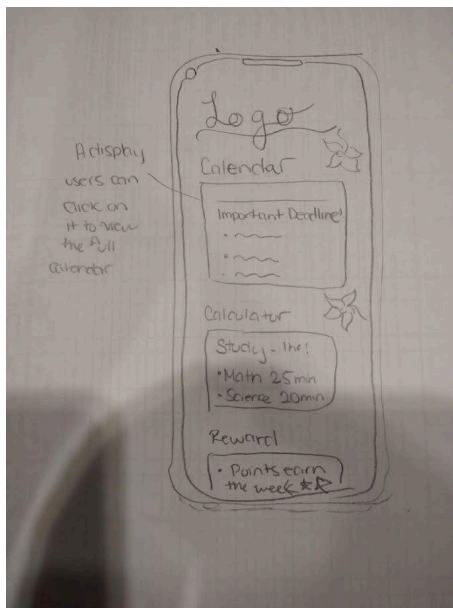 Logo
A display
users can
click on
it to view
the full
calendar
Calendar
Important Deadline!
Calculator
Study - 1hr!
• Math 25min
• Science 20min
Reward
• Points earn
the week